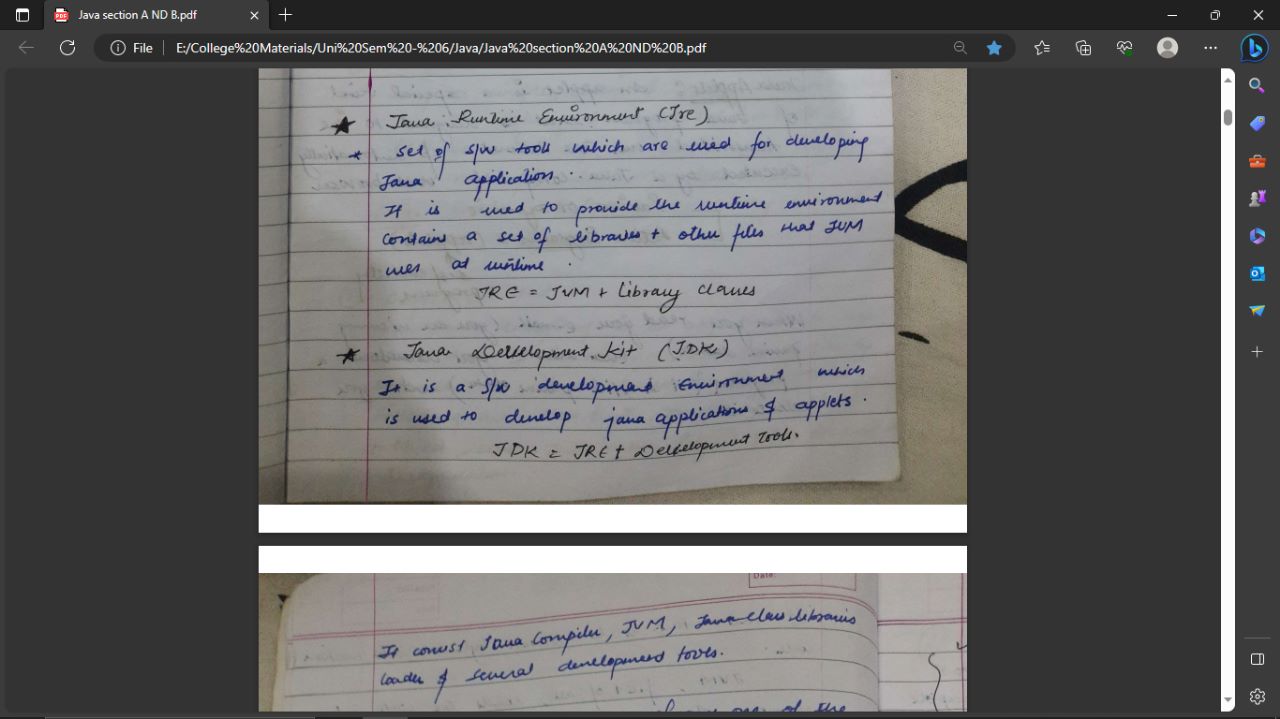 Java section A ND B.pdf
File
E:/College%20Materials/Uni%20Sem%20-%206/Java/Java%20section%20A%20ND%20B.pdf
Java Runtime Environment (Jre)
set of s/w tools which are used for developing
Java application.
It is used to provide the runtime environment
contains a set of libraries + other files that JVM
uses at runtime.
JRE = JVM + Library classes
Java Development Kit (JDK)
It is a S/w development Environment which
is used to develop java applications & applets.
JDK = JRE + Development Tools.
Date:
It consist Java Compiler, JVM, Java class libraries
loader & several development tools.
one of the